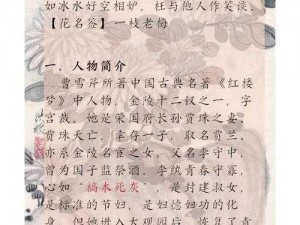 如冰水好空相妒，枉与他人作笑谈。
【花名签】一枝老梅
一、人物简介
曹雪芹所著中国古典名著《红楼
梦》中人物，金陵十二钗之一，字
宫裁，她是荣国府长孙贾珠之妻。
贾珠夭亡，幸存一子，取名贾兰。
亦系金陵名宦之女，父名李守中，
曾为国子监祭酒。李纨青春守寡，
心如“槁木死灰”，是封建淑女，
是标准的节妇，是妇德妇功的化
身，但她进入大观园后，恢复了青